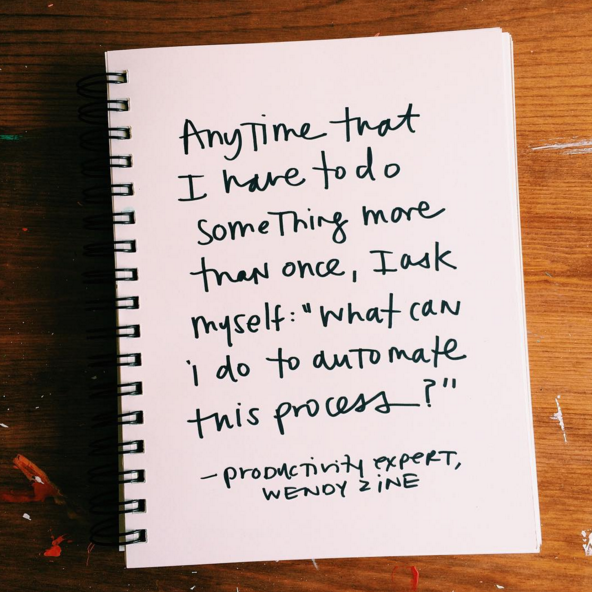 Anytime that
I have to do
something more
than once, I ask
myself: "What can
i do to automate
this process?"
- productivity expert,
WENDY ZiNE